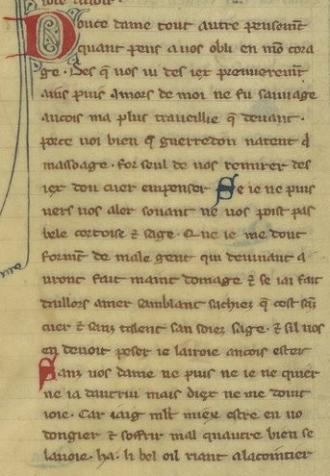 Douce dame tout autre pensemt̄
quant pens a uos obli en mō cora
ge · Des q̄ uos ui des iex premieremt̄
ains puis amors de moi ne fu sauuage
ancois ma plus trauellie q̄ deuant ·
porce uoi bien q̄ guerredon natent q̄
massoage · for seul de uos remirer des
iex dou cuer enpenser Se ie ne puis
uers uos aler souant ne uos poist pas
bele cortoise ⁊ sage · Que ie me dout
formt̄ de male gent qui deuinant a
uront fait maint domage ⁊ se iai fait
daillors amer samblant sachiez q̄ cest sāz
cuer ⁊ sanz talent san soiez sage · ⁊ sil uos
en deuoit peser ie lairoie ancois ester
Sanz uos dame ne puis ne ie ne quier
ne ia dautrui mais diex ne me doint
ioie · Car iaig mlt miex estre en uo
dongier ⁊ soffrir mal quautre bien se
lauoie · ha · li bel oil riant alacointier